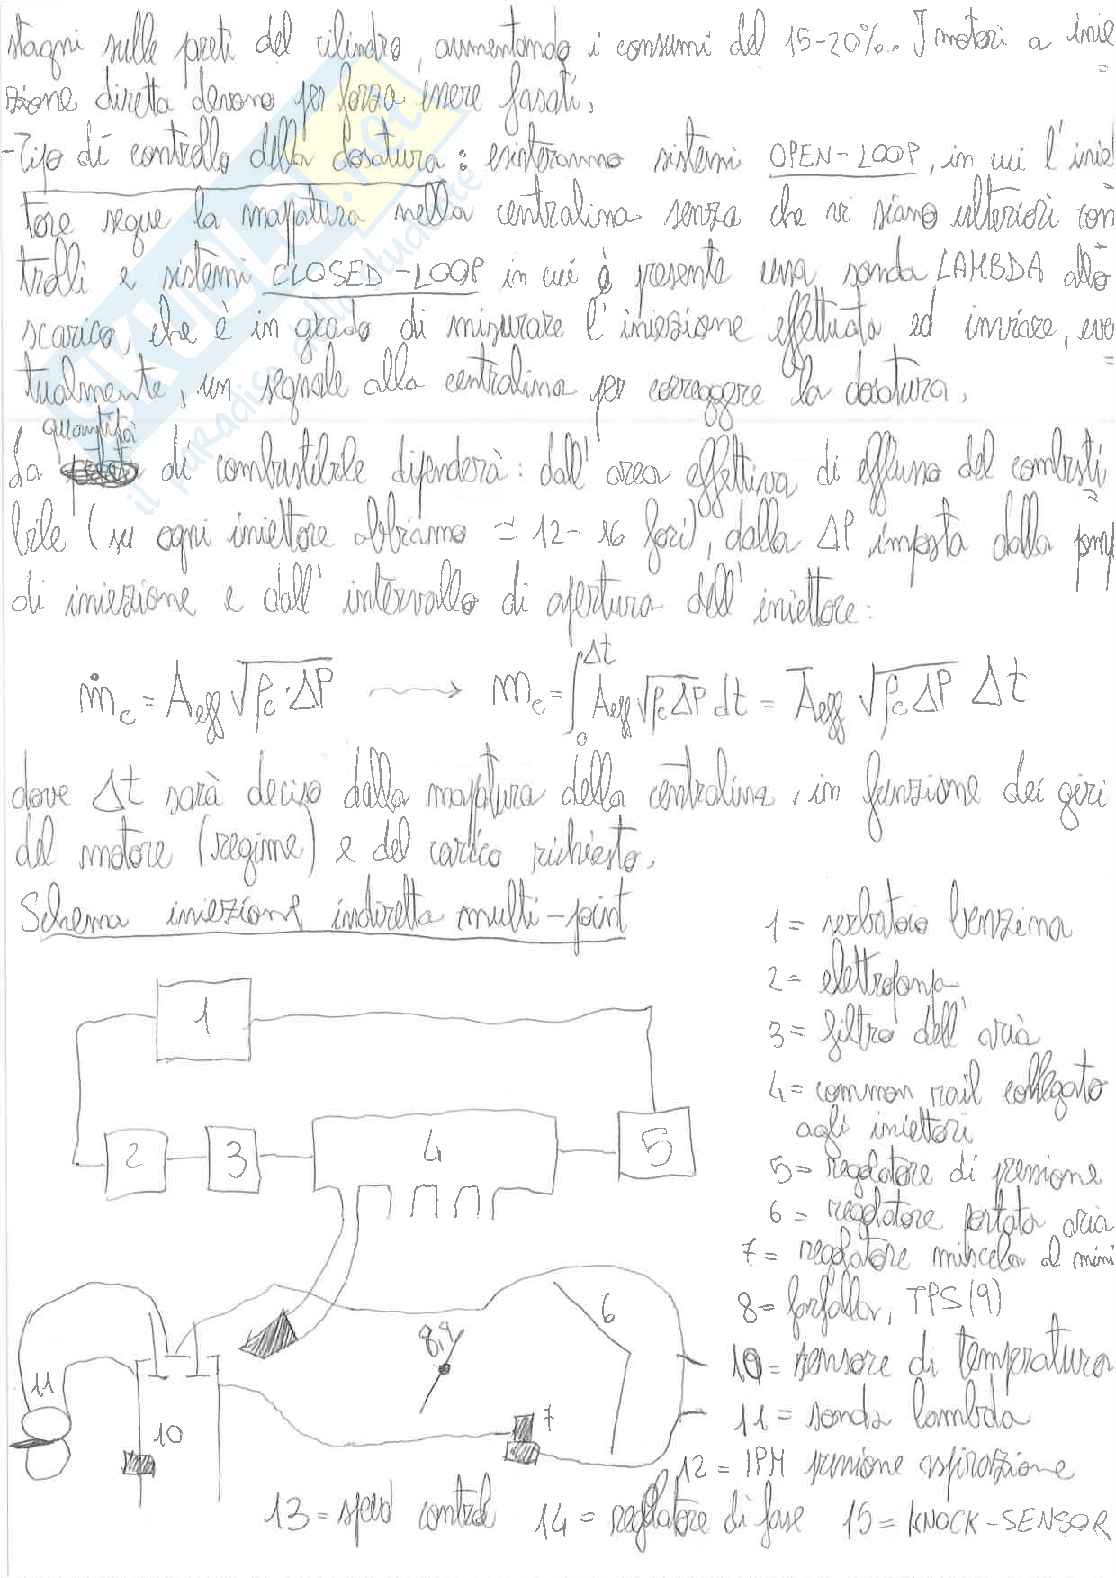 stagni sulle preti del cilindro, aumentando i consumi del 15-20%. I motori a inie
zione diretta devono per forza essere fasati.
-Tipo di controllo della dosatura: esisteranno sistemi OPEN-LOOP, in cui l'iniet
tore segue la mapatura nella centralina senza che vi siano ulteriori con
trolli e sistemi CLOSED-LOOP in cui è presente una sonda LAMBDA allo
scarico, che è in grado di misurare l'iniezione effettuata ed inviare, even
tualmente, un segnale alla centralina per correggere la dosatura.
quantità
La di combustibile dipenderà: dall'area effettiva di efflusso del combusti
bile (su ogni iniettore abbiamo ≃ 12-16 fori), dalla ΔP imposta dalla pomp
di iniezione e dall'intervallo di apertura dell'iniettore:
ṁc = Aeff √ρc·ΔP → mc = ∫0Δt Aeff √ρcΔP dt = Āeff √ρcΔP Δt
dove Δt sarà deciso dalla mapatura della centralina, in funzione dei giri
del motore (regime) e del carico richiesto.
Schema iniezione indiretta multi-point
1= serbatoio benzina
2= elettropompa
3= filtro dell'aria
4= common rail collegato
agli iniettori
5= regolatore di pressione
6= regolatore portata aria
7= regolatore miscela al mini
8= farfalla, TPS(9)
10= sensore di temperatura
11= sonda lambda
12= IPM pressione aspirazione
13= speed control 14= regolatore di fase 15= KNOCK-SENSOR
1
2
3
4
5
6
8,9
7
11
10
il paradiso dello studente